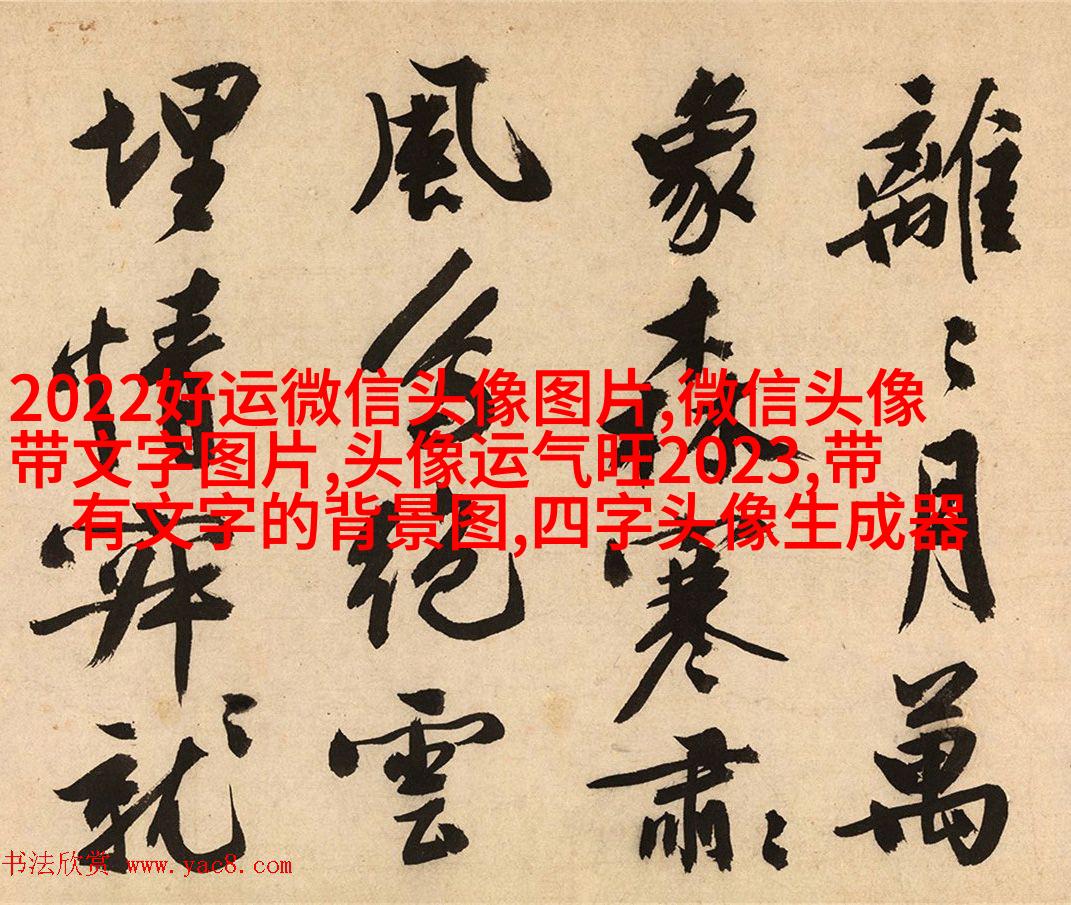 離〻月萬
象森寒肅〻
風鳥絶雲
埋情〻就
2022好运微信头像图片,微信头像
带文字图片,头像运气旺2023,带
有文字的背景图,四字头像生成器
书法欣赏 www.yac8.com